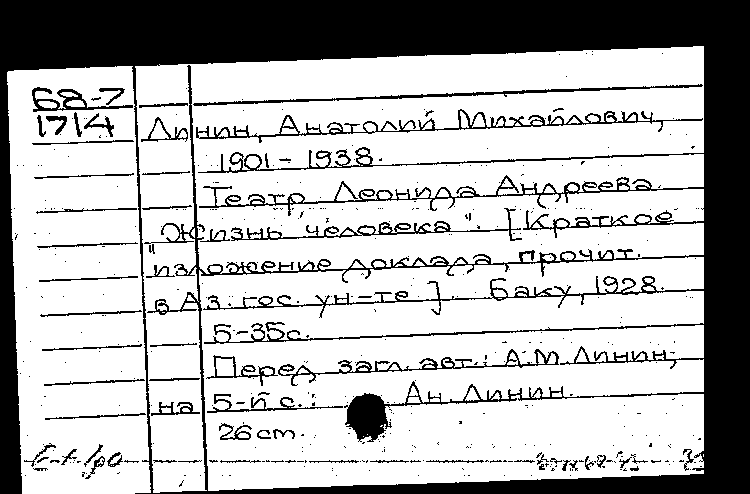 68-7
1714
Линин, Анатолий Михайлович,
1901 - 1938.
Театр Леонида Андреева
"Жизнь человека". [Краткое
изложение доклада, прочит.
в Аз. гос. ун-те]. Баку, 1928.
5-35с.
Перед загл. авт.: А.М. Линин,
на 5-й с.: Ан. Линин.
26 cm.